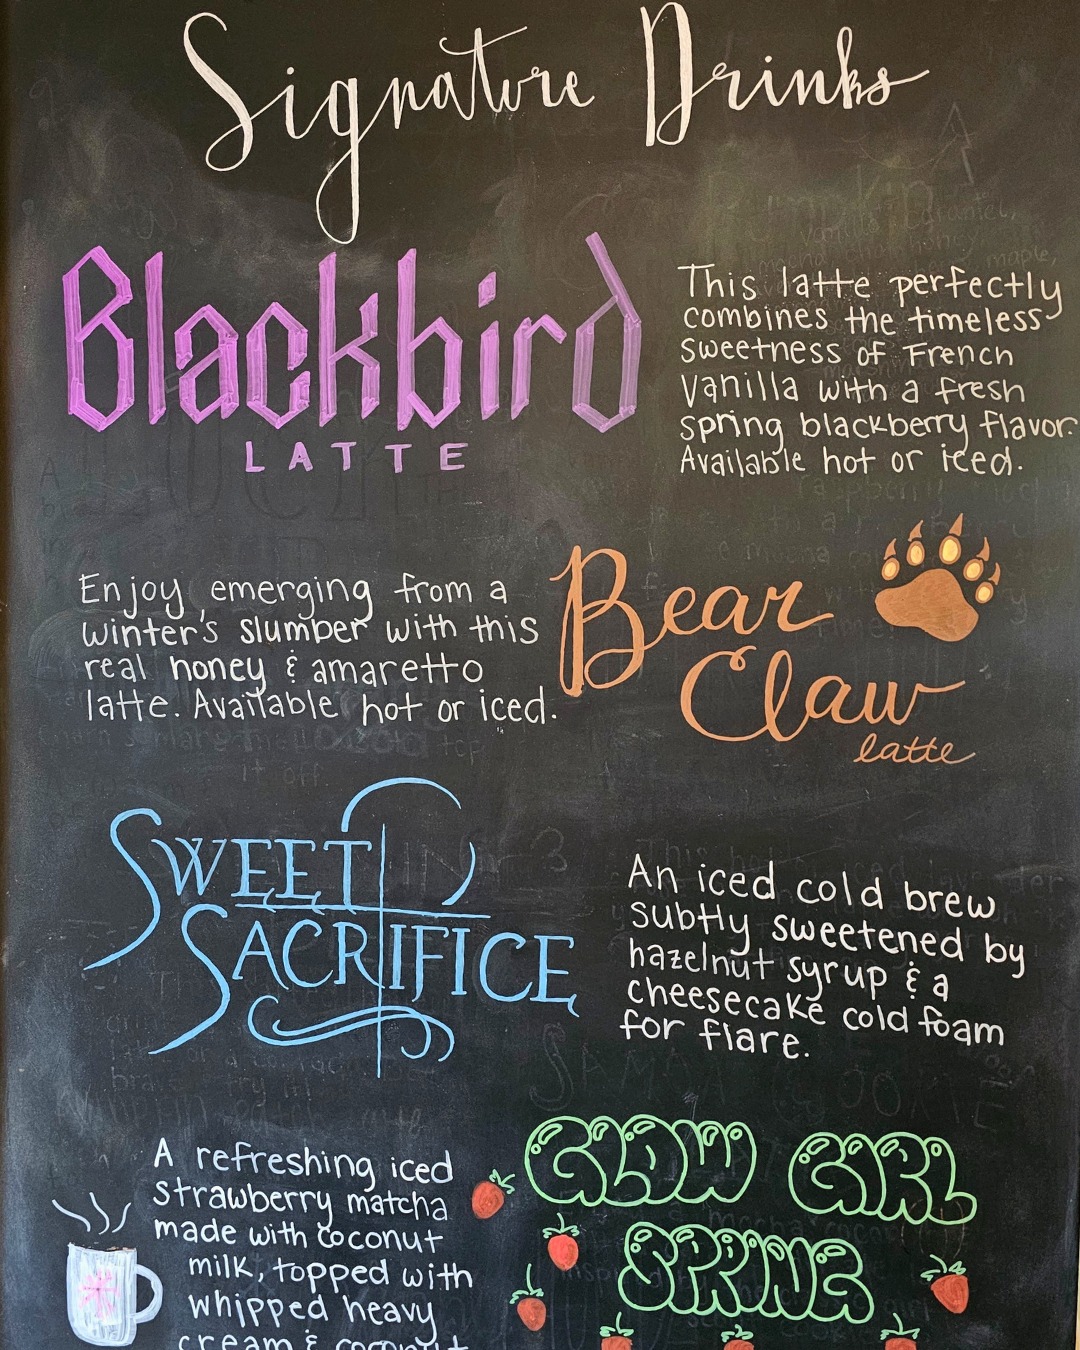 Signature Drinks
Blackbird
LATTE
This latte perfectly
combines the timeless
sweetness of French
Vanilla with a fresh
spring blackberry flavor.
Available hot or iced.
Enjoy emerging from a
winter's slumber with this
real honey & amaretto
latte. Available hot or iced.
Bear
Claw
latte
SWEET
SACRIFICE
An iced cold brew
subtly sweetened by
hazelnut syrup & a
cheesecake cold foam
for flare.
A refreshing iced
strawberry matcha
made with coconut
milk, topped with
whipped heavy
cream & coconut
GLOW GIRL
SPRING